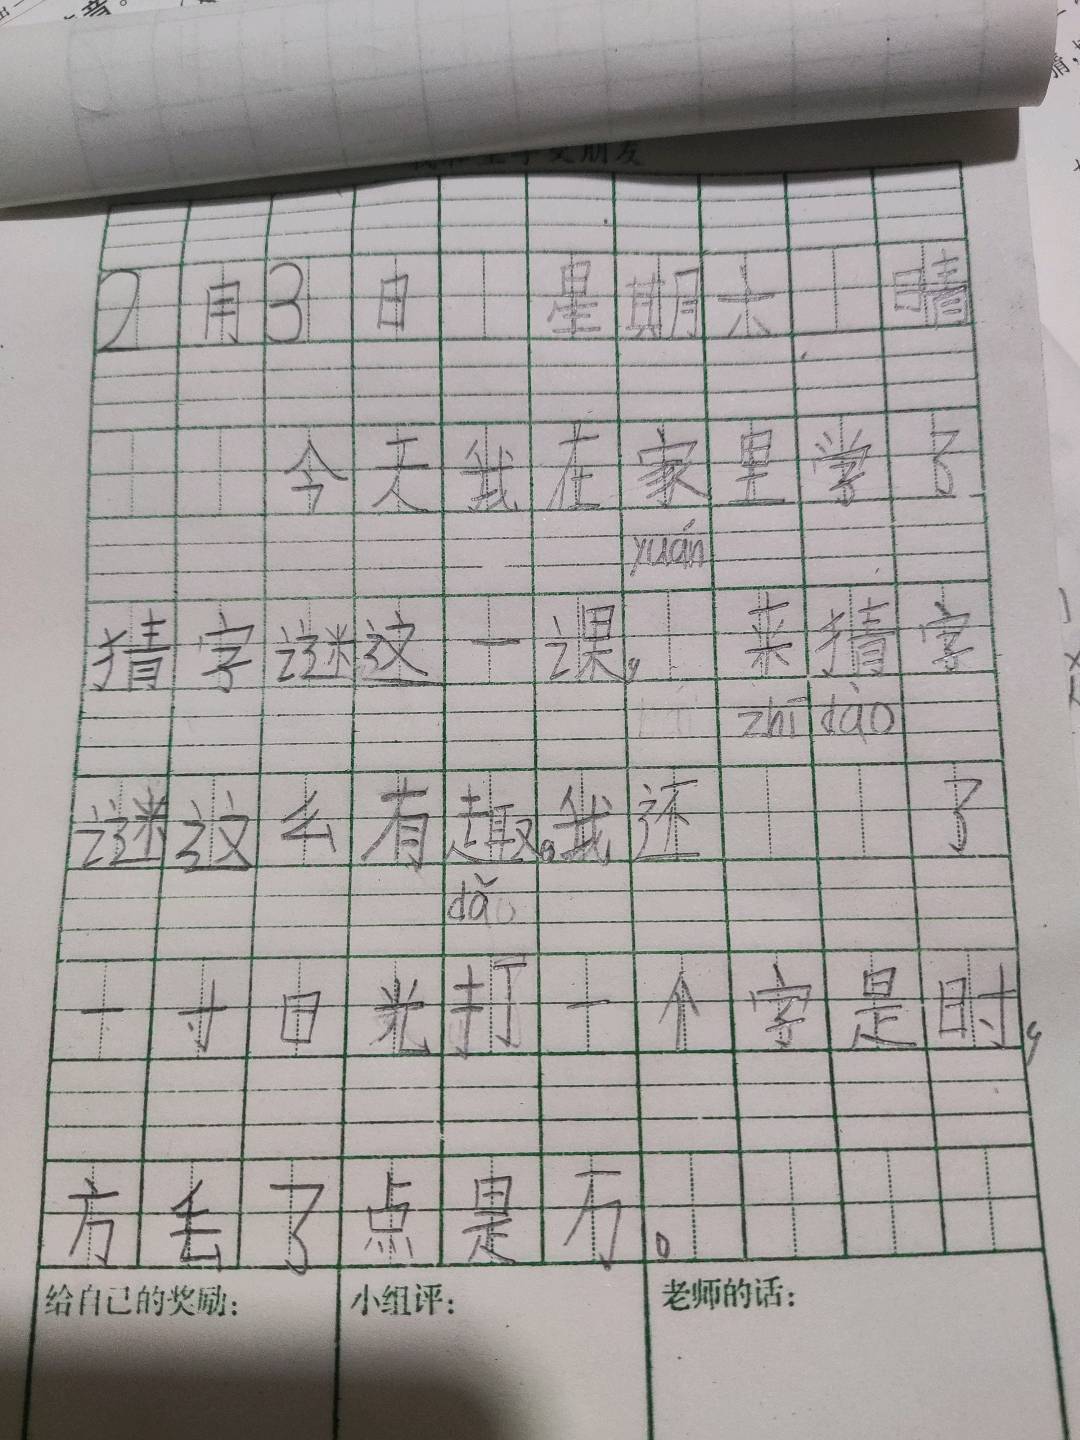 2月3日 星期六 晴
今天我在家里学了
yuán
猜字谜这一课, 来猜字
zhī dào
谜这么有趣。我还 了
dǎ
一寸日光打一个字是时,
方丢了点是万。
给自己的奖励: 小组评: 老师的话: